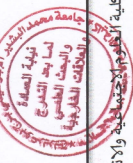 جامعة محمد البشير الإبراهيمي
نيابة العمادة
لما بعد التدرج
والبحث العلمي
والعلاقات الخارجية
كلية العلوم الاجتماعية والإنسانية